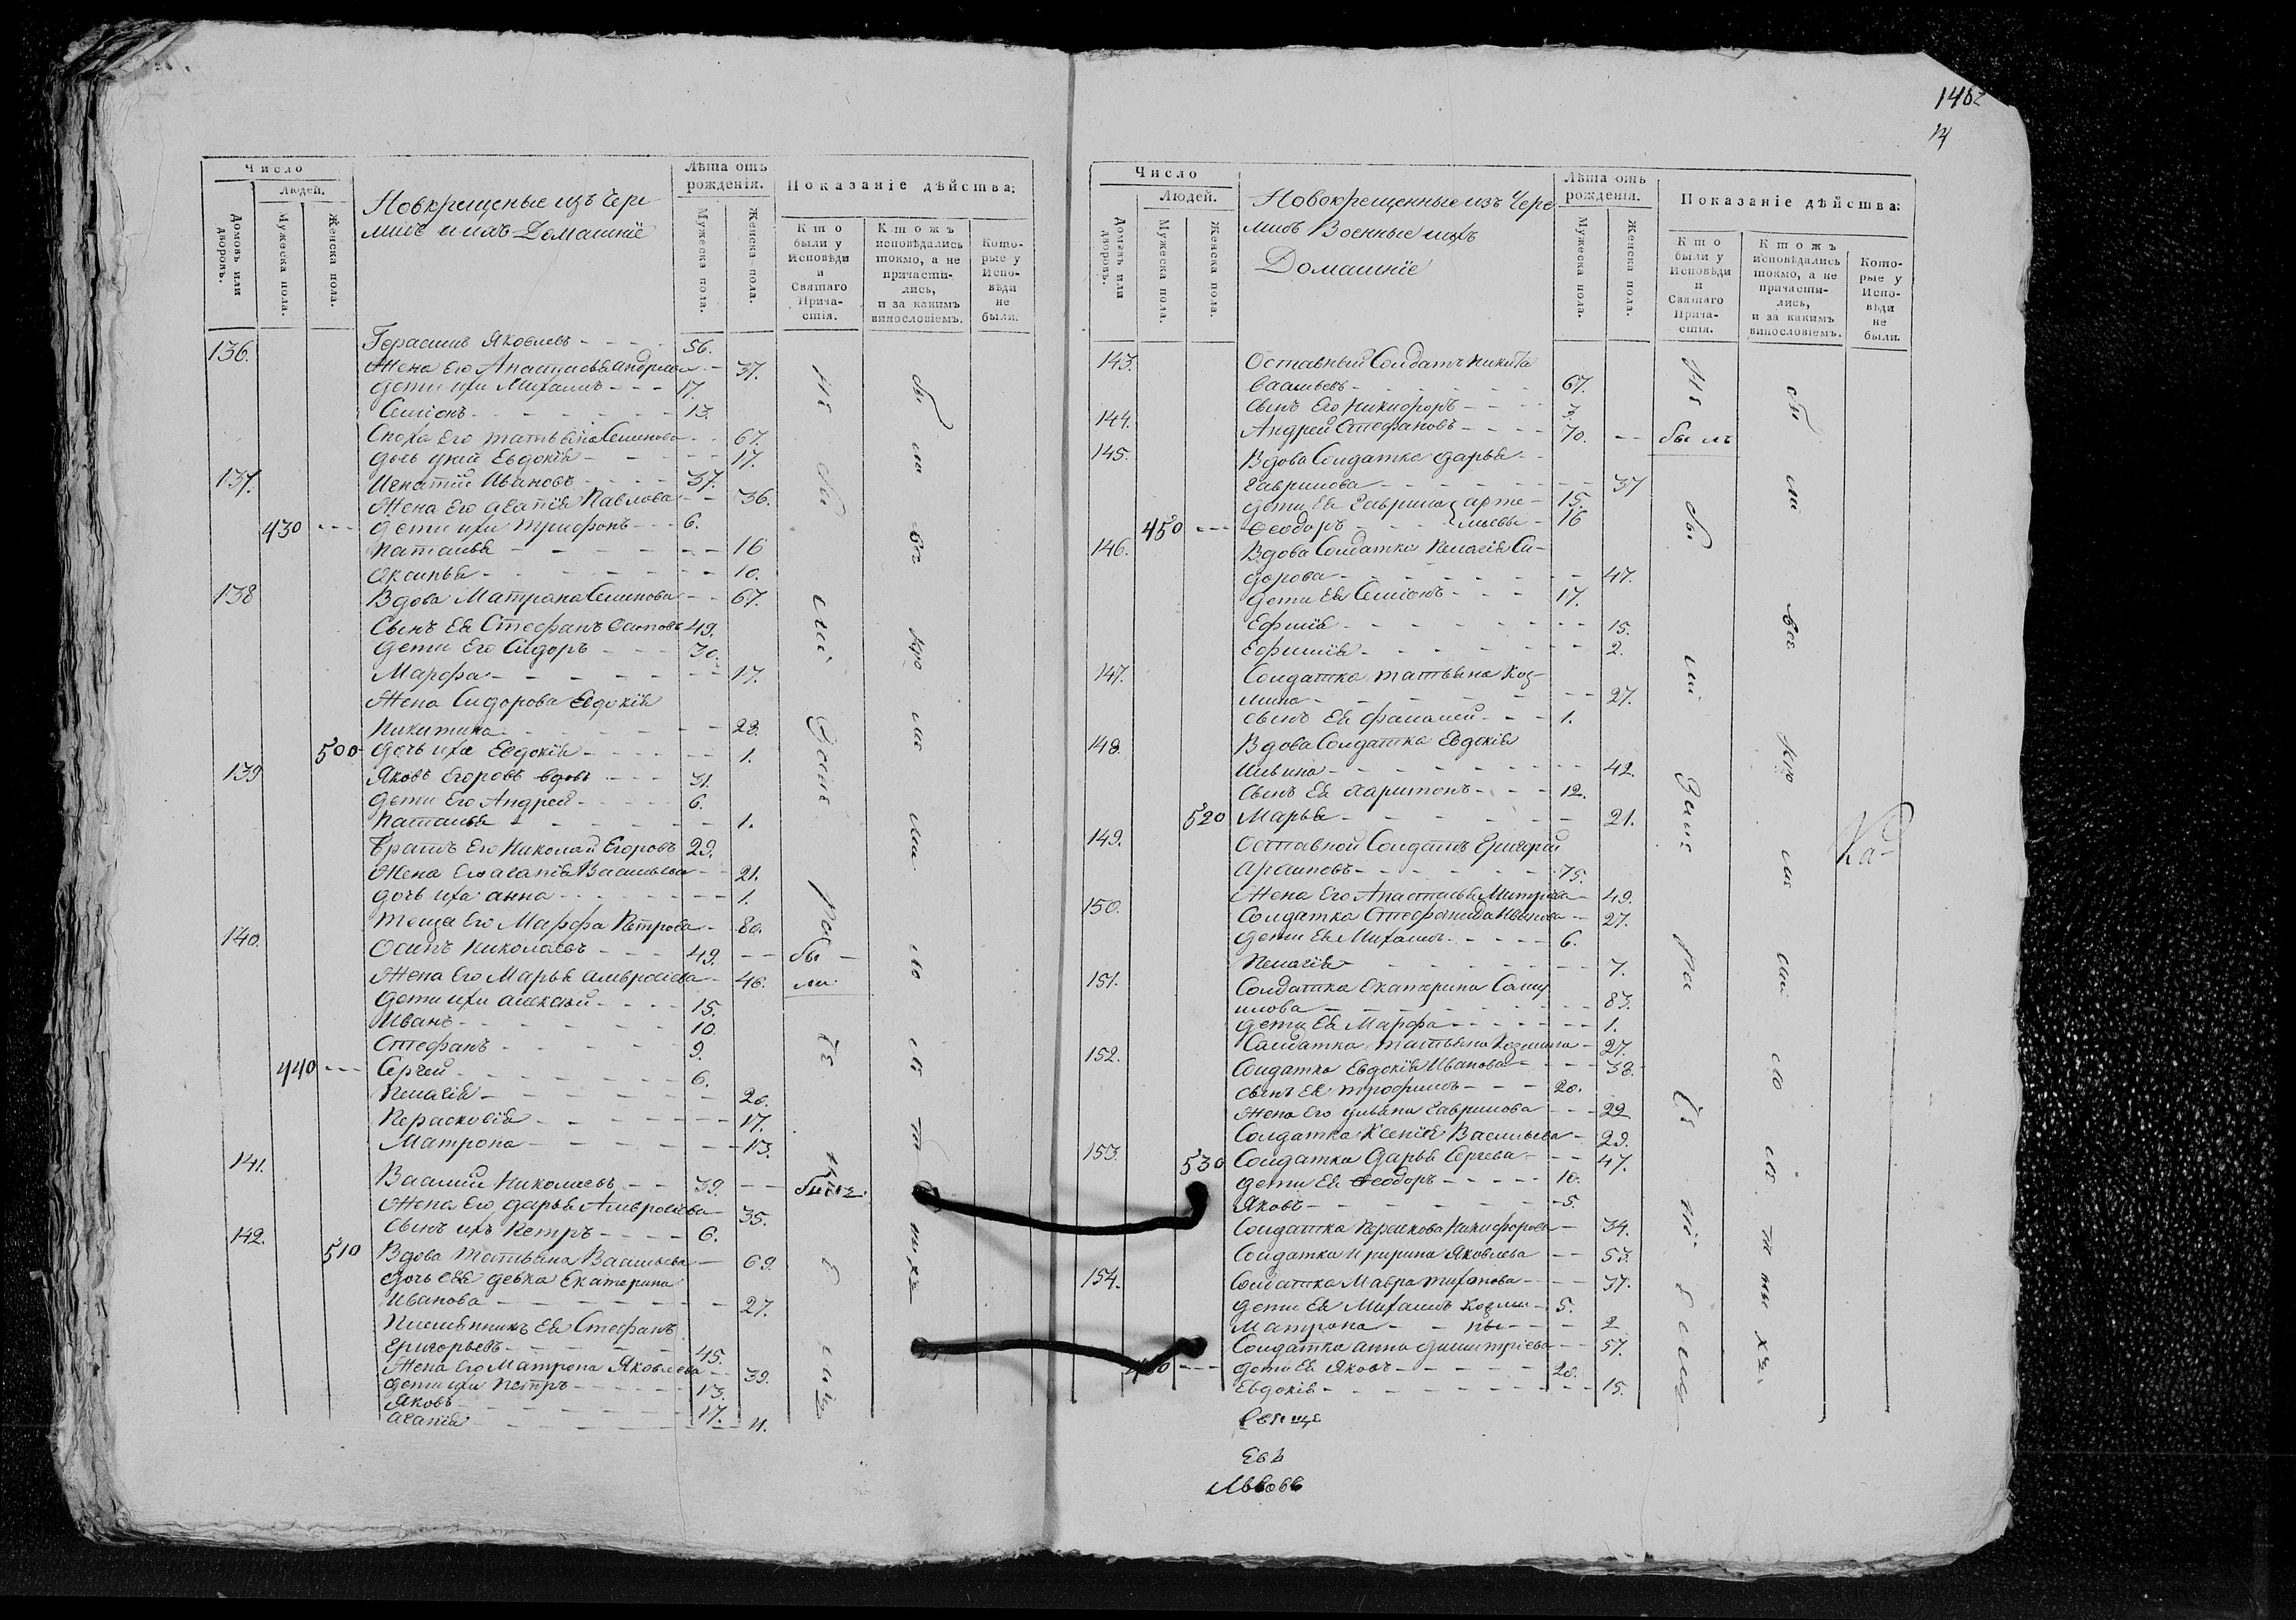 1482
14
Число
Людей.
Домовъ или дворовъ.
Мужеска пола.
Женска пола.
Новкрещеные изъ Чере
мисъ и ихъ Домашніе
Лѣта отъ рожденія.
Мужеска пола.
Женска пола.
Показаніе дѣйства:
Кто были у Исповѣди и Святаго Прича-стія.
Ктожъ исповѣдались токмо, а не причасти-лись, и за какимъ винословіемъ.
Кото-рые у Испо-вѣди не были.
136. Герасимъ Яковлевъ - - - - 56.
Жена Его 37.
Дети ихъ Михаилъ - - - 17.
Семіонъ - - - - - - 13.
Его татьяна Семенова - - 67.
Дочь Евдокія - - - - - 17.
137. Игнатій Ивановъ - - - - 37.
Жена Его агапія Павлова - - 36.
430 - - - Дети ихъ трифонъ - - - 6.
Наталья - - - - - - 16
Аксинья - - - - - - 10.
138 Вдова Матрона Семенова - - 67.
Сынъ Ея Стефанъ 49.
Дети Его Сидоръ - - - 30.
Марфа - - - - - - - 17.
Жена Сидорова Евдокія
Никитина - - - - - - 28.
500 - Дочь ихъ Евдокія - - - - - 1.
139 Яковъ Егоровъ вдовъ - - - 31.
Дети Его Андрей - - - - 6.
Наталья - - - - - - 1.
Братъ Его Николай Егоровъ 29.
Жена Его агапія Васильева - - 21.
дочь ихъ анна - - - - - - - 1.
Теща Его Марфа Петрова - 80.
140. Осипъ Николаевъ - - - 49. - - бы -
Жена Его Марья амвросіева - 46. ли
Дети ихъ алексѣй - - - - 15.
Иванъ - - - - - - 10.
Стефанъ - - - - - 9.
440 - - - Сергей - - - - - - 6.
Пелагія - - - - - - - 20.
Парасковія - - - - - - 17.
Матрона - - - - - - 13.
141. Василій Николаевъ - - 39. - -
Жена Его дарья Амвросіева - 35.
Сынъ ихъ Петръ - - - - 6.
142. 510 Вдова Татьяна Васильева - 69.
Дочь Ея девка Екатерина
Иванова - - - - - - - 27.
Племянникъ Ея Стефанъ
Григорьевъ - - - - - - 45.
Жена Его Матрона Яковлева - - 39.
Дети ихъ Петръ - - - - - 13.
Яковъ - - - - - - 17.
агапія - - - - - - 11.
Число
Людей.
Домовъ или дворовъ.
Мужеска пола.
Женска пола.
Новокрещенные изъ Чере
мисъ Военные ихъ
Домашніе
Лѣта отъ рожденія.
Мужеска пола.
Женска пола.
Показаніе дѣйства:
Кто были у Исповѣди и Святаго Прича-стія.
Ктожъ исповѣдались токмо, а не причасти-лись, и за какимъ винословіемъ.
Кото-рые у Испо-вѣди не были.
143. Оставный Солдатъ Никита
Васильевъ - - - - - - 67.
Сынъ Его Никифоръ - - - - 3.
144. Андрей Стефановъ - - - - 70. - - былъ
145. Вдова Солдатка дарья - -
Гаврилова - - - - - - - 37
дети Ея Гаврила арте - 15.
450 - - - Ѳеодоръ - - - - мьевы - 16
146. Вдова Солдатка Пелагія Си-
дорова - - - - - - - - 47.
дети Ея Семіонъ - - - 17.
Ефимія - - - - - - - - 15.
Ефимія - - - - - - - - 2.
147. Солдатка татьяна Коз-
мина - - - - - - - - 27.
сынъ Ея - - - 1.
148. Вдова Солдатка Евдокія
Ильина - - - - - - - - 42.
Сынъ Ея Харитонъ - - - 12.
520 Марья - - - - - - 21.
149. Оставной Солдатъ Григорій
Архиповъ - - - - - - 75.
Жена Его Анастасья Митріева - 49.
150. Солдатка Стефанида Иванова - - 27.
Дети Ея Михаилъ - - - - - 6.
Пелагія - - - - - - - 7.
151. Солдатка Екатерина Саму
илова - - - - - - - - 83.
дети Ея Марфа - - - - - - 1.
152. Салдатка татьяна Козмина - 27.
Солдатка Евдокія Иванова - - - 38.
сынъ Ея трофимъ - - - 20.
Жена Его ульяна Гаврилова - - - 22
Солдатка Ксенія Васильева - 29.
153. 530 Солдатка Дарья Сергеева - - - 47.
дети Ея Ѳеодоръ - - - - - 10.
Яковъ - - - - - - - 5.
Солдатка Никифорова - 34.
Солдатка Иририна Яковлева - - 53.
154. Солдатка Мавра тихонова - - - 37.
дети Ея Михаилъ Козми - 5.
Матрона - - ны - - - 2
Солдатка анна димитріева - - 57.
дети Ея Яковъ - - - - - 20.
Евдокія - - - - - - - - 15.
Свяще
Евѣ
Львовъ
Ка-